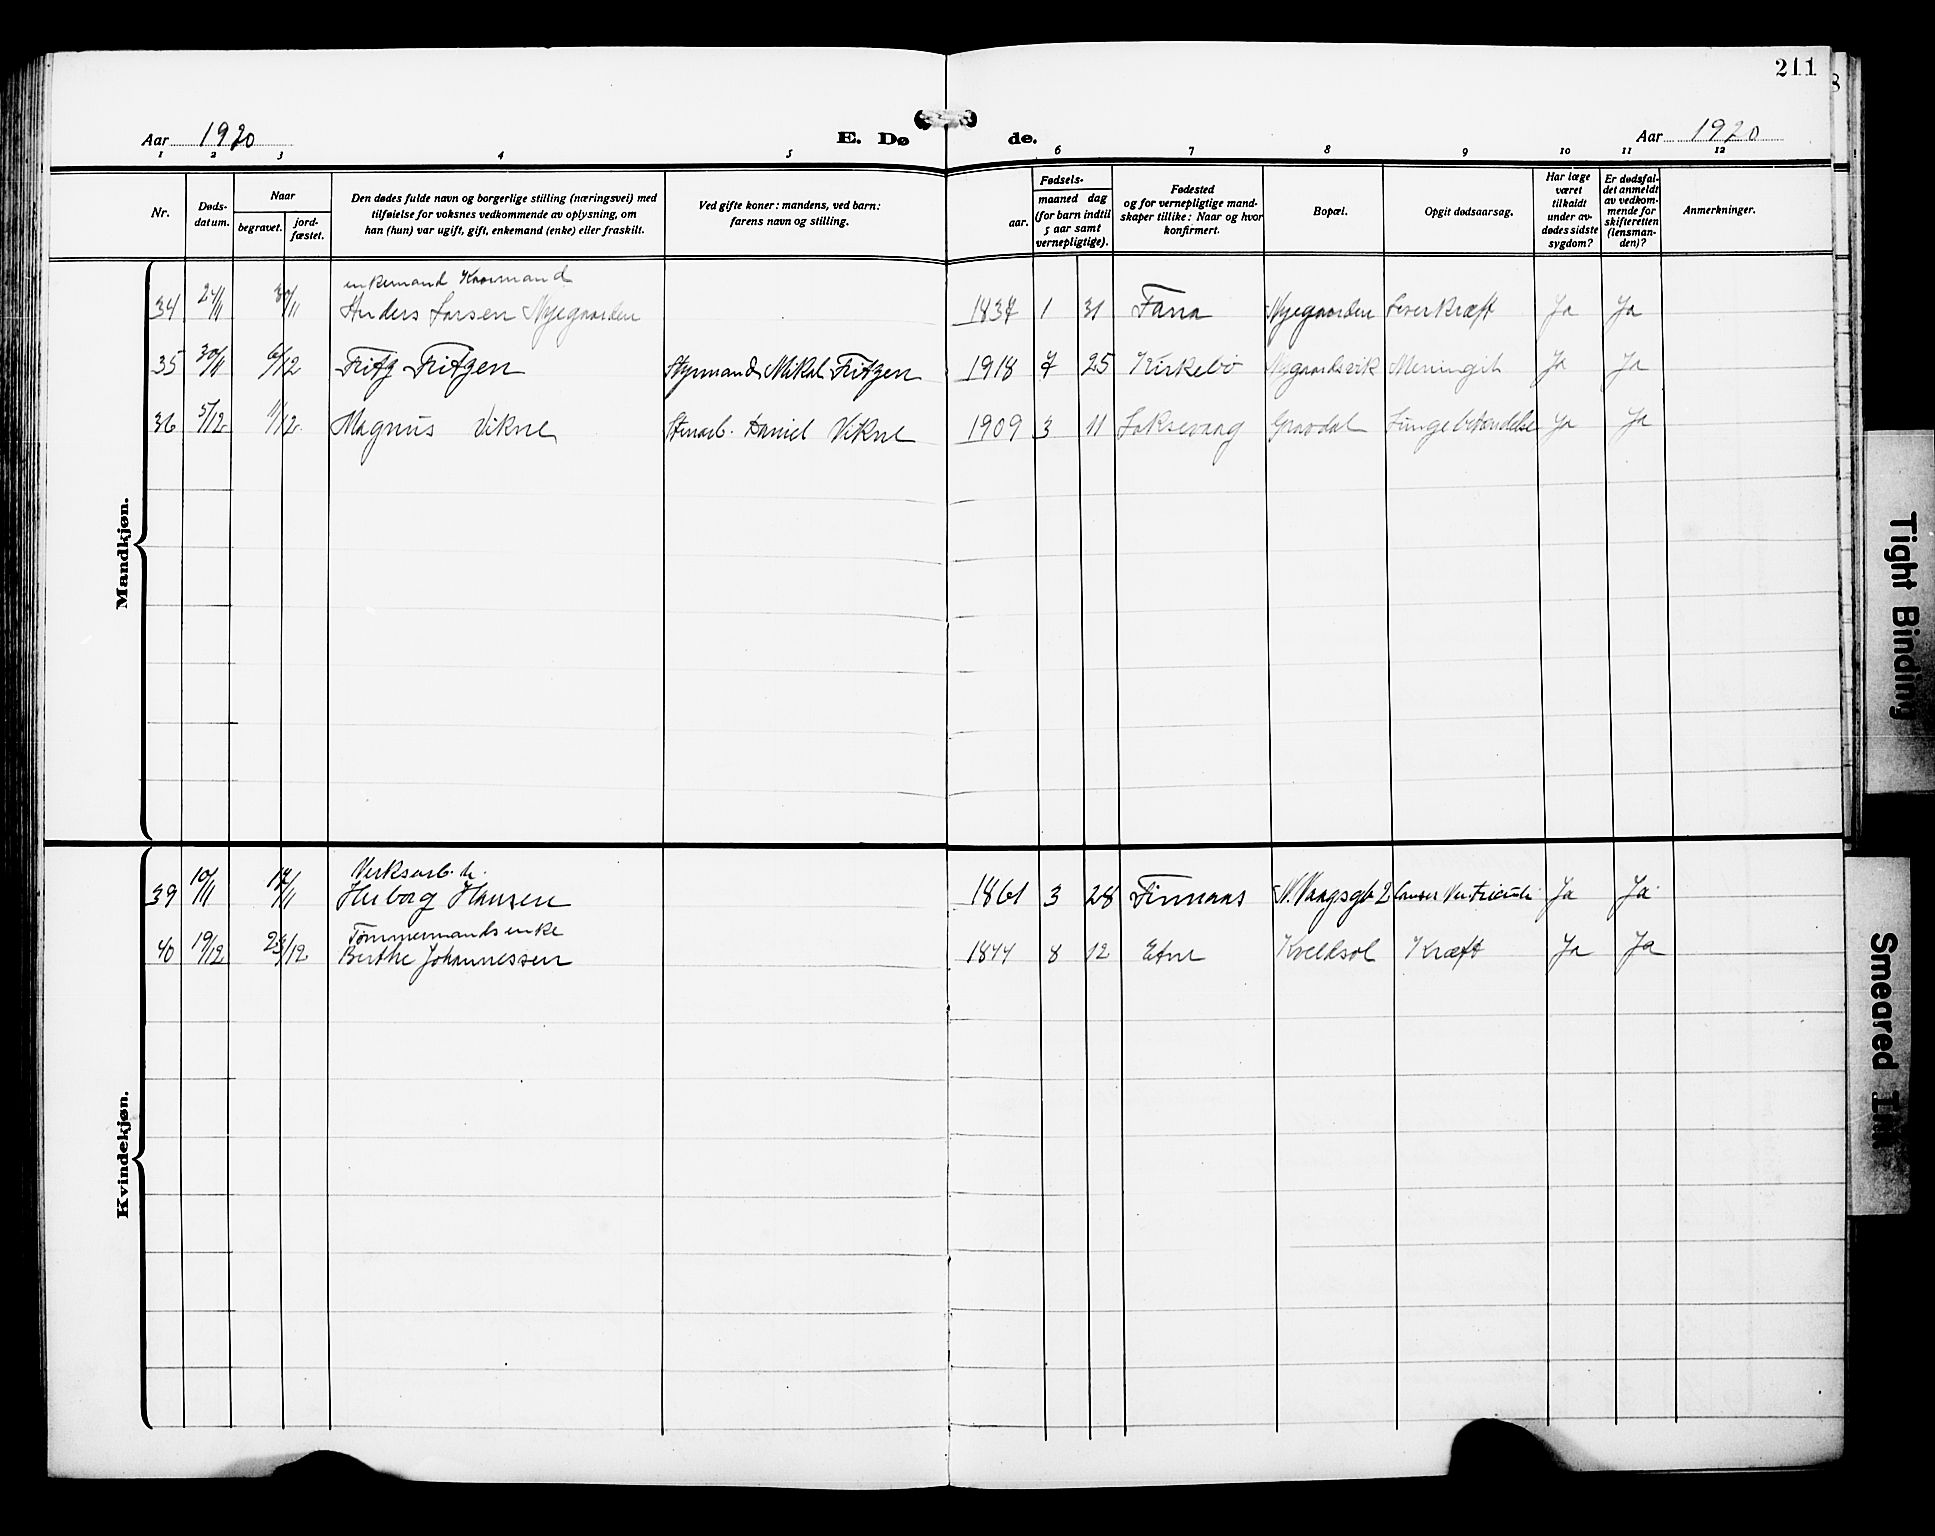 211
Aar 1920 E. Dø de. Aar 1920
1 2 3 4 5 6 7 8 9 10 11 12
Nr. Døds-datum. Naar begravet. jord-fæstet. Den dødes fulde navn og borgerlige stilling (næringsvei) med tilføielse for voksnes vedkommende av oplysning, om han (hun) var ugift, gift, enkemand (enke) eller fraskilt. Ved gifte koner: mandens, ved barn: farens navn og stilling. Fødsels- aar. maaned dag (for barn indtil 5 aar samt vernepligtige). Fødested og for vernepligtige mand-skaper tillike: Naar og hvor konfirmert. Bopæl. Opgit dødsaarsag. Har læge været tilkaldt under av-dødes sidste sygdom? Er dødsfal-det anmeldt av vedkom-mende for skifteretten (lensman-den)? Anmerkninger.
Mandkjøn.
enkemand Kaarmand
34 24/11 30/11 Anders Larsen Nyegaarden 1837 1 31 Fana Nyegaarden Leverkræft Ja Ja
35 30/11 6/12 Fritz Fritzen Styrmand Mikal Fritzen 1918 7 25 Kirkebø Nygaardsvik Meningit Ja Ja
36 5/12 11/12 Magnus Vikne Stenarb. Daniel Vikne 1909 3 11 Laksevaag Gravdal Lungebetændelse Ja Ja
Kvindekjøn.
Verksarb. h.
39 10/11 17/11 Herborg Hansen 1861 3 28 Finnaas N. Vaagsgt 2 Cancer Ventriculi Ja Ja
Tømmermandsenke
40 19/12 23/12 Berthe Johannessen 1844 8 12 Etne Kveldsol Kræft Ja Ja
Tight Binding
Smeared Ink